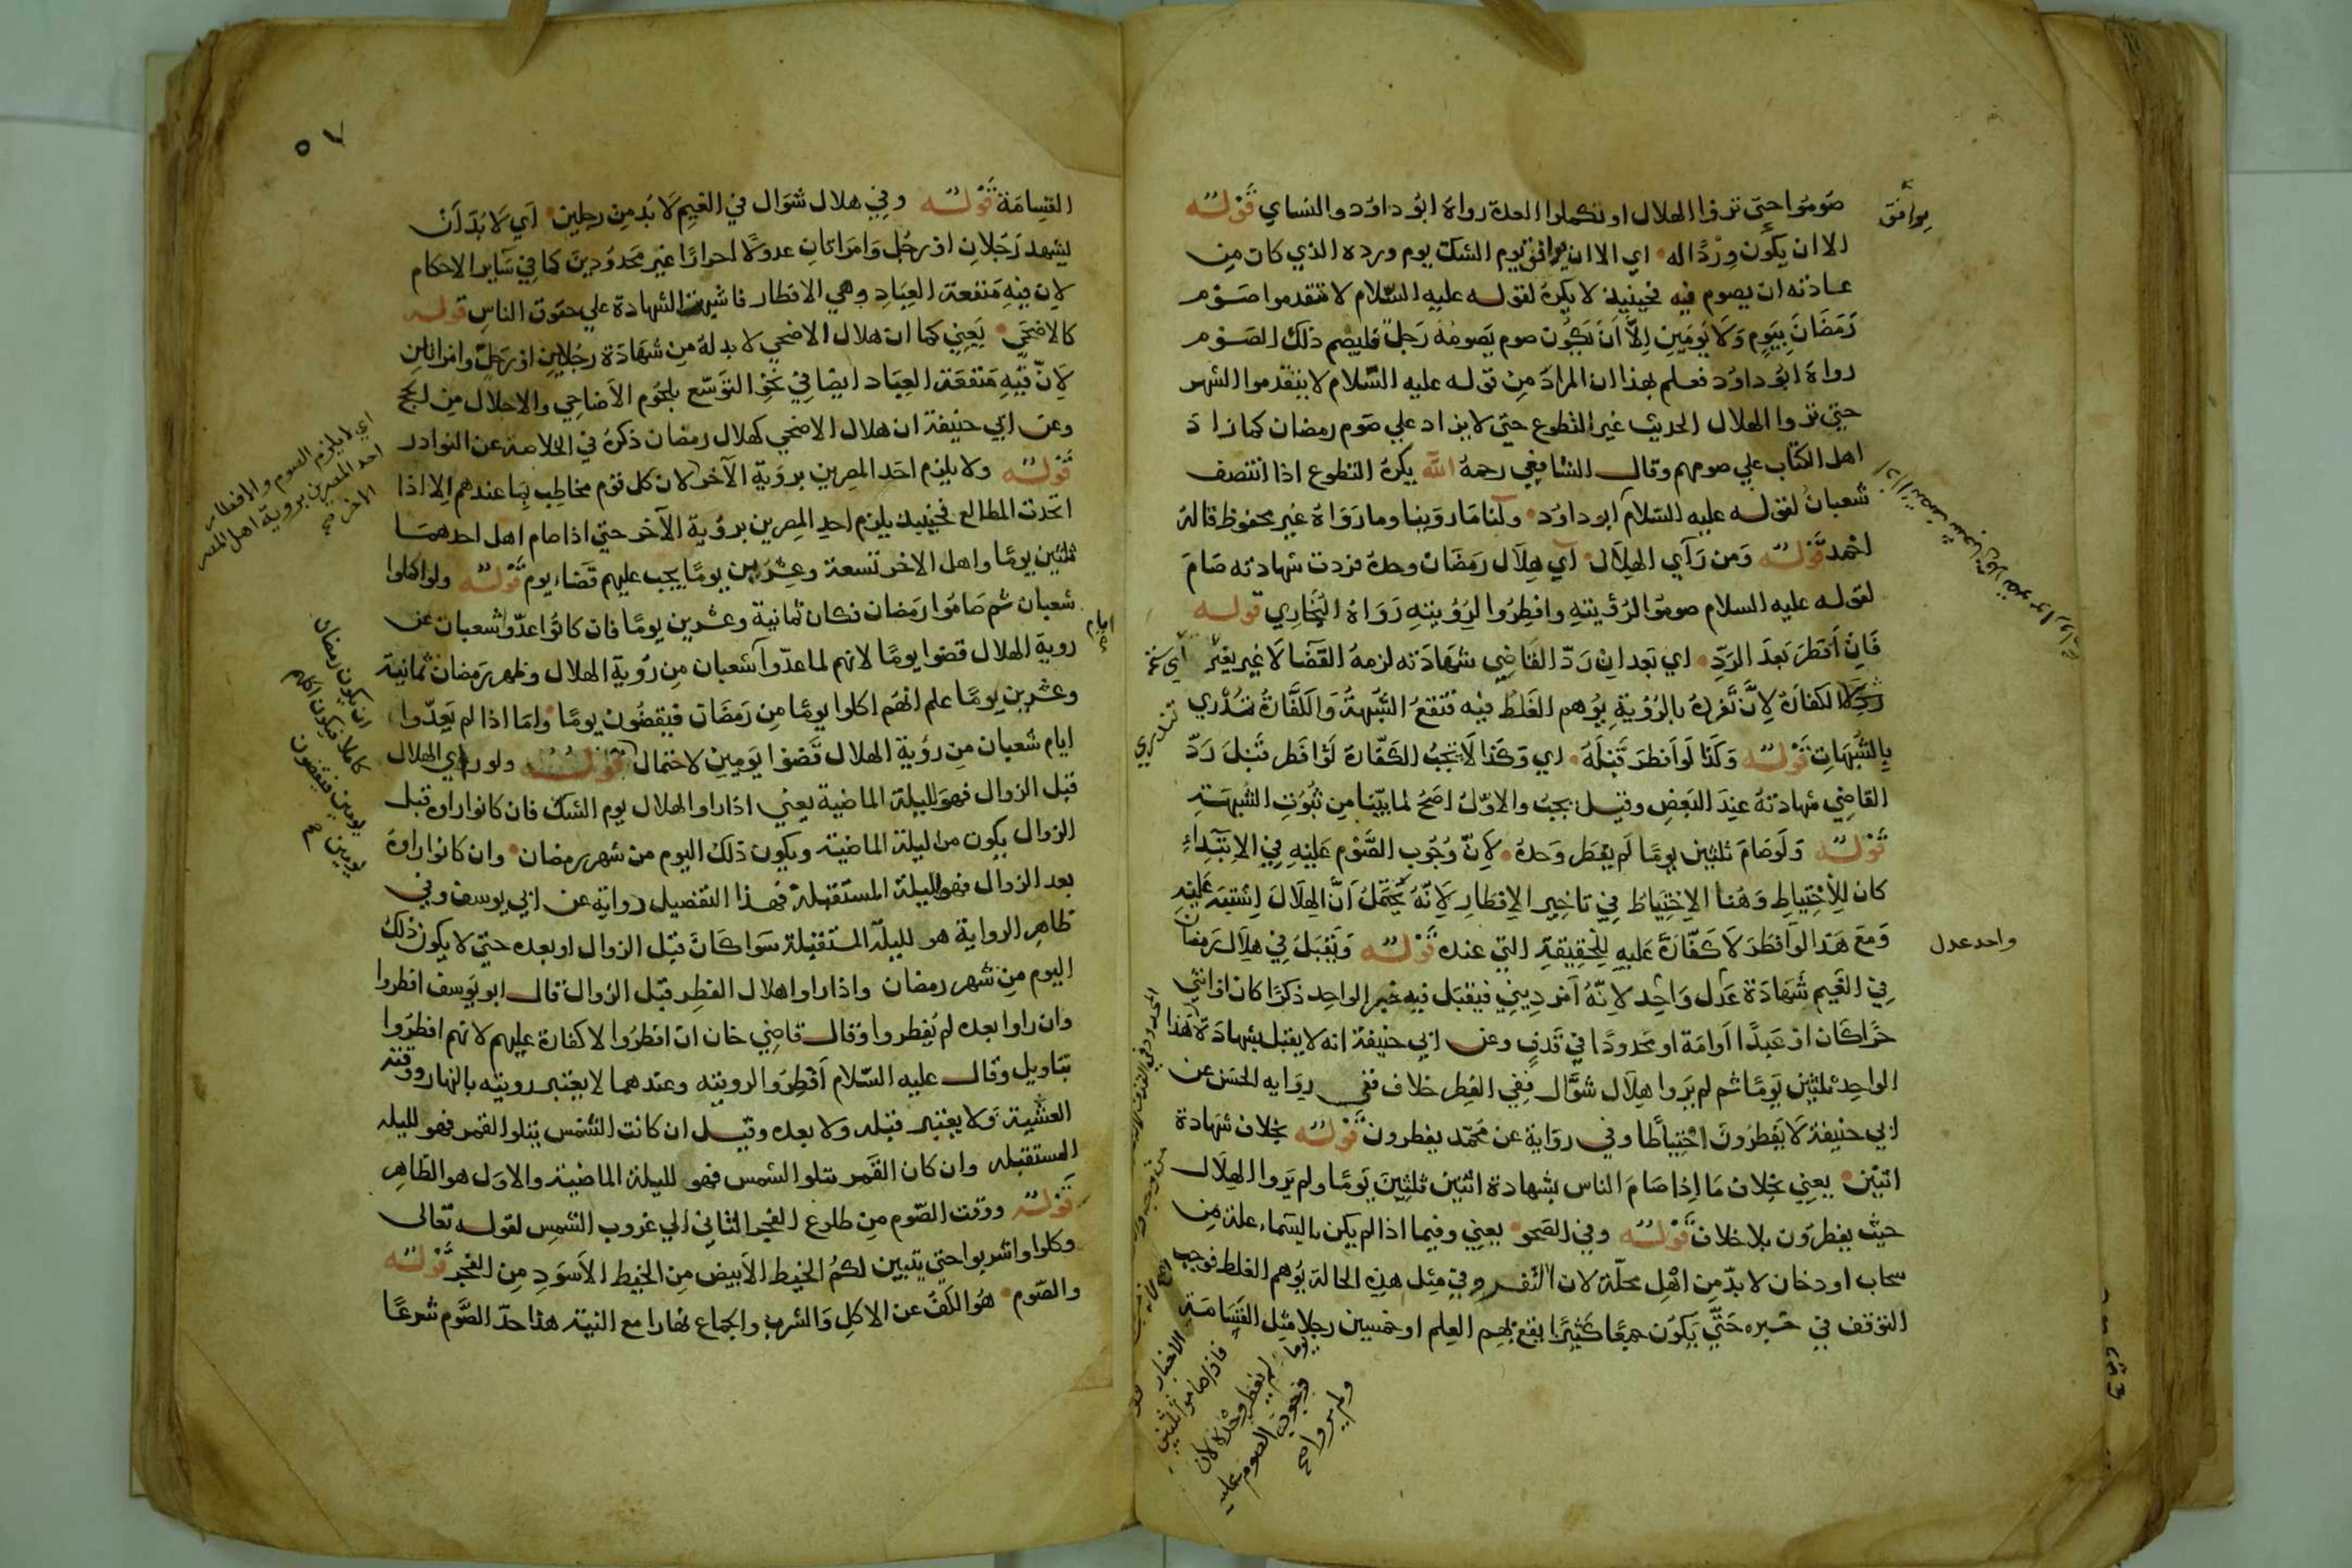 صوموا حتى تروا الهلال او تكملوا العدة رواه ابو داود والنساي قوله
الا ان يكون وردا له اي الا ان يوافق يوم الشك يوم ورده الذي كان من
عادته ان يصوم فيه فحينيذ لا يكره لقوله عليه السلام لا تتقدموا صوم
رمضان بيوم ولا يومين الا ان يكون صوم يصومه رجل فليصم ذلك الصوم
رواه ابو داود فعلم بهذا ان المراد من قوله عليه السلام لا يتقدموا الشهر
حتى تروا الهلال الحديث غير التطوع حتى لا يزاد على صوم رمضان كما زاد
اهل الكتاب علي صومهم وقال الشافعي رحمه الله يكره التطوع اذا انتصف
شعبان لقوله عليه السلام ابو داود ولنا ما روينا وما رواه غير محفوظ قاله
احمد قوله ومن رآي الهلال آي هلال رمضان وحده فردت شهادته صام
لقوله عليه السلام صوموا لرؤيته وافطروا لرؤيته رواه البخاري قوله
فان افطر بعد الرد اي بعد ان رد القاضي شهادته لزمه القضا لا غير يعني
الكفارة لان تفرده بالرؤية يوهم الغلط فيه فتقع الشبهة والكفارة تندري
بالشبهات قوله وكذا لو افطر قبله اي وكذا لا يجب الكفارة لو افطر قبل رد
القاضي شهادته عند البعض وقيل يجب والاول اصح لما بينا من ثبوت الشبهة
قوله ولو صام ثلثين يوما لم يفطر وحده لان وجوب الصوم عليه في الابتداء
كان للاحتياط وهنا الاحتياط في تاخير الافطار لانه يحتمل ان الهلال اشتبه عليه
ومع هذا لو افطر لا كفارة عليه للحقيقة التي عنده قوله ويقبل في هلال رمضان
في الغيم شهادة عدل واحد لانه امر ديني فيقبل فيه خبر الواحد ذكرا كان او انثى
حرا كان او عبدا او امة او محدودا في قذف وعن ابي حنيفة انه لا يقبل بشهادة هذا
الواحد ثلثين يوما ثم لم يروا هلال شوال ففي الفطر خلاف ففي رواية الحسن عن
ابي حنيفة لا يفطرون احتياطا وفي رواية عن محمد يفطرون قوله بخلاف شهادة
اثنين يعني بخلاف ما اذا صام الناس بشهادة اثنين ثلثين يوما ولم يروا الهلال
حيث يفطرون بلا خلاف قوله وفي الصحو يعني وفيما اذا لم يكن بالسماء علة من
سحاب او دخان لا بد من اهل محلة لان التفرد في مثل هذه الحالة يوهم الغلط فوجب
التوقف في خبره حتى يكون جمعا كثيرا يقع بهم العلم او خمسين رجلا مثل القسامة
يوافق
واحد عدل
تندري
فاذا صاموا ثلثين
يوما لم يفطر وحده لان
وجوب الصوم عليه
ولم يروا صح
٥٧
القسامة قوله وفي هلال شوال في الغيم لا بد من رجلين اي لا بد ان
يشهد رجلان او رجل وامراتان عدولا احرارا غير محدودين كما في ساير الاحكام
لان فيه منفعة العباد وهي الافطار فاشبهت الشهادة علي حقوق الناس قوله
كالاضحي يعني كما ان هلال الاضحي لا بد له من شهادة رجلين او رجل وامراتين
لان فيه منفعة العباد ايضا في نحو التوسع بلحوم الاضاحي والاحلال من الحج
وعن ابي حنيفة ان هلال الاضحي كهلال رمضان ذكره في الخلاصة عن النوادر
قوله ولا يلزم احد المصرين بروية الآخر لان كل قوم مخاطب بما عندهم الا اذا
اتحدت المطالع فحينيذ يلزم احد المصرين برؤية الآخر حتى اذا صام اهل احدهما
ثلثين يوما واهل الاخر تسعة وعشرين يوما يجب عليهم قضاء يوم قوله ولو اكملوا
شعبان ثم صاموا رمضان فكان ثمانية وعشرين يوما فان كانوا عدوا شعبان عن
روية الهلال قضوا يوما لانهم لما عدوا شعبان من رؤية الهلال وظهر رمضان ثمانية
وعشرين يوما علم انهم اكلوا يوما من رمضان فيقضون يوما واما اذا لم يعدوا
ايام شعبان من رؤية الهلال قضوا يومين لاحتمال قوله ولو راي الهلال
قبل الزوال فهو لليلة الماضية يعني اذا راوا الهلال يوم الشك فان كانوا راوه قبل
الزوال يكون من ليلة الماضية ويكون ذلك اليوم من شهر رمضان وان كانوا راوه
بعد الزوال فهو لليلة المستقبلة فهذا التفصيل رواية عن ابي يوسف وفي
ظاهر الرواية هو لليلة المستقبلة سوا كان قبل الزوال او بعده حتى لا يكون ذلك
اليوم من شهر رمضان واذا راوا هلال الفطر قبل الزوال قال ابو يوسف افطروا
وان راوا بعده لم يفطروا وقال قاضي خان ان افطروا لا كفارة عليهم لانهم افطروا
بتاويل وقال عليه السلام افطروا لرويته وعندهما لا يعتبر رويته بالنهار ووقته
العشية ولا يعتبر قبله ولا بعده وقيل ان كانت الشمس يتلوا القمر فهو لليله
المستقبله وان كان القمر يتلوا الشمس فهو لليلة الماضية والاول هو الظاهر
قوله ووقت الصوم من طلوع الفجر الثاني الي غروب الشمس لقوله تعالى
وكلوا واشربوا حتى يتبين لكم الخيط الابيض من الخيط الاسود من الفجر قوله
والصوم هو الكف عن الاكل والشرب والجماع نهارا مع النية هذا حد الصوم شرعا
اي لا يلزم الصوم والافطار
احد المصرين بروية اهل المصر
الاخر صح
ايام
ان يكون رمضان
كاملا فيكون اكلهم
يومين فيقضون
يومين